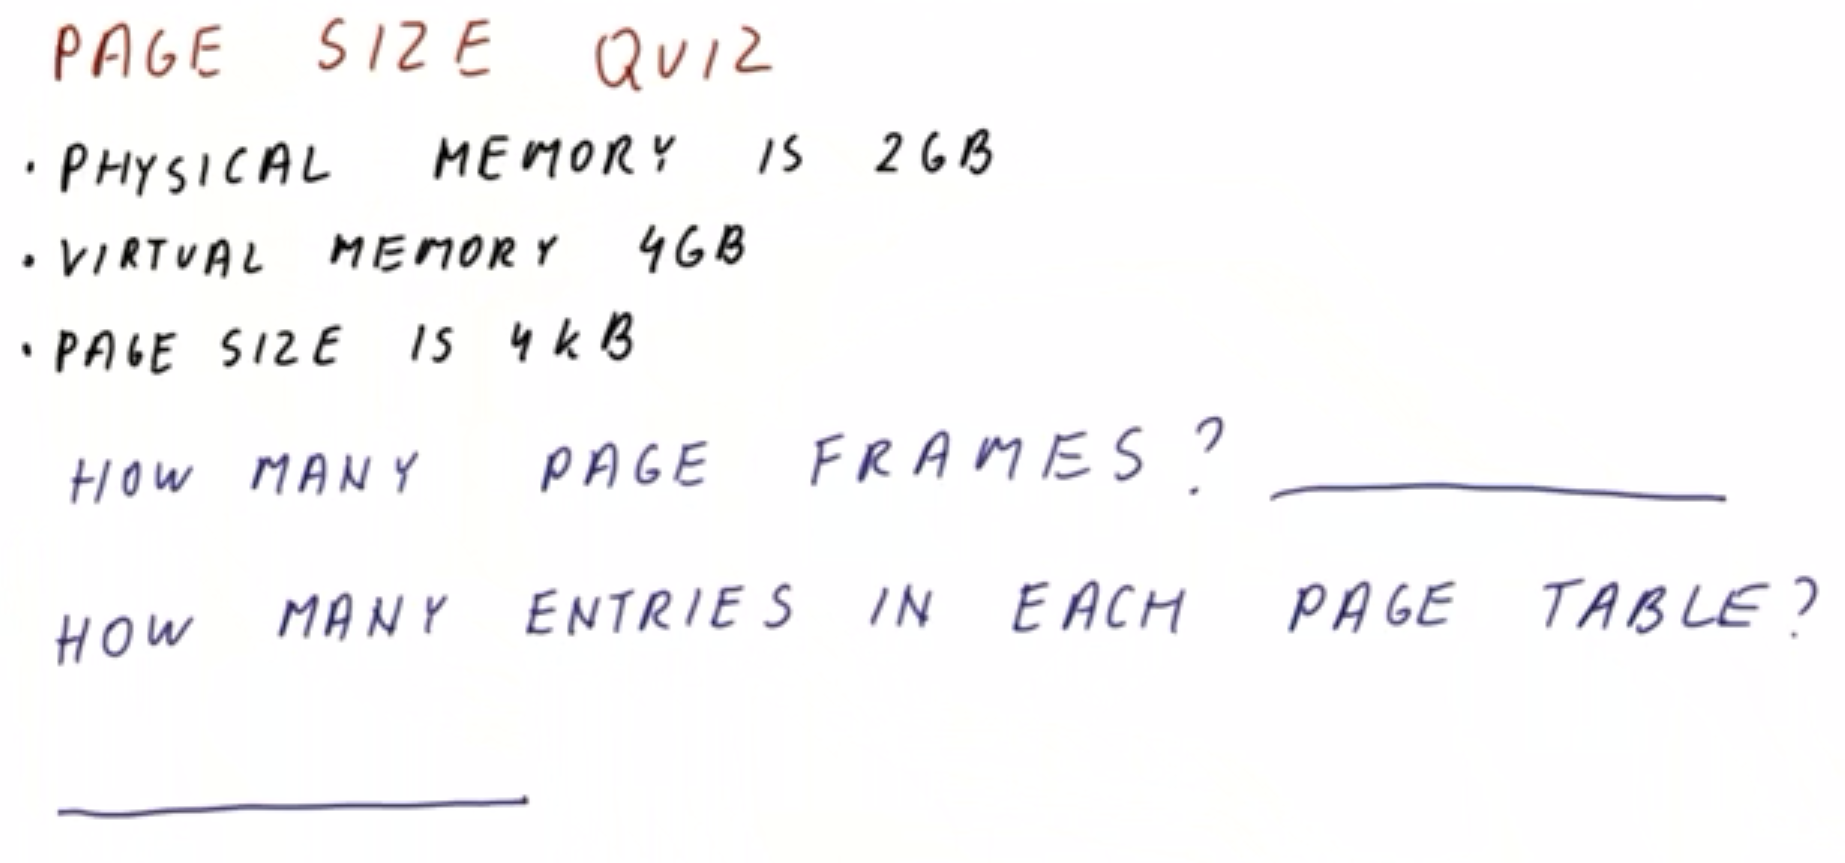 PAGE SIZE QUIZ
· PHYSICAL MEMORY IS 2GB
· VIRTUAL MEMORY 4GB
· PAGE SIZE IS 4kB
HOW MANY PAGE FRAMES?
HOW MANY ENTRIES IN EACH PAGE TABLE?